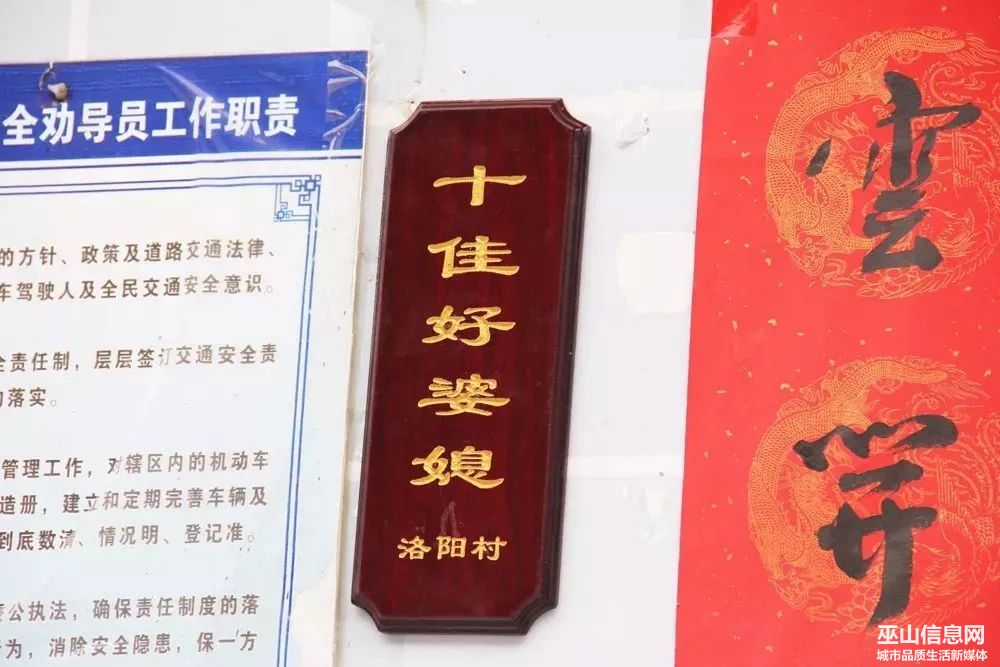 全劝导员工作职责
的方针、政策及道路交通法律、
车驾驶人及全民交通安全意识。
全责任制，层层签订交通安全责
的落实。
管理工作，对辖区内的机动车
造册，建立和定期完善车辆及
到底数清、情况明、登记准。
公执法，确保责任制度的落
为，消除安全隐患，保一方
十佳好婆媳
洛阳村
雲
巫山信息网
城市品质生活新媒体